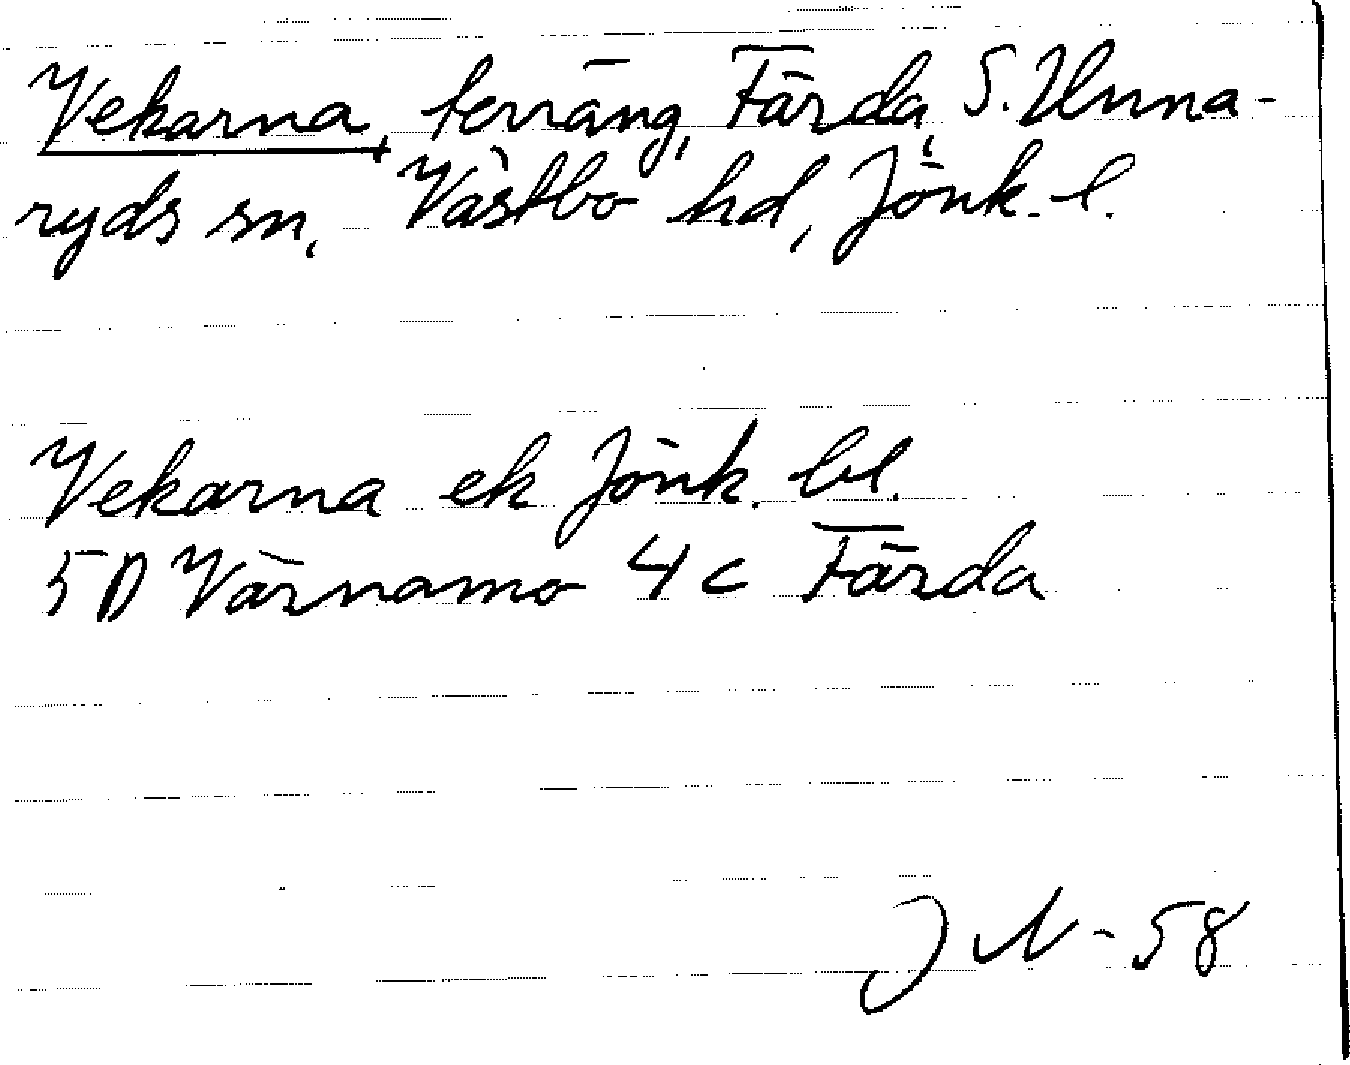 Vekarna, terräng, Färda, S. Unna-
ryds sn, Västbo hd, Jönk. l.
Vekarna ek Jönk. bl.
5D Värnamo 4c Färda
JN-58